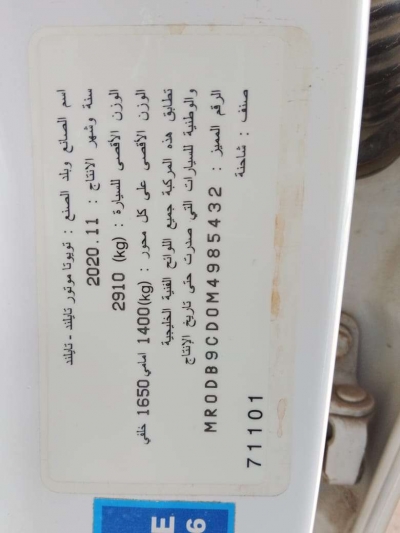 اسم الصانع وبلد الصنع : تويوتا موتور تايلند - تايلند
سنة وشهر الانتاج : 2020.11
الوزن الأقصى للسيارة : 2910 (kg)
الوزن الأقصى على كل محور : (kg)1400 امامي 1650 خلفي
تطابق هذه المركبة جميع اللوائح الفنية الخليجية
والوطنية للسيارات التي صدرت حتى تاريخ الإنتاج
الرقم المميز : MR0DB9CD0M4985432
صنف : شاحنة
71101
E
6